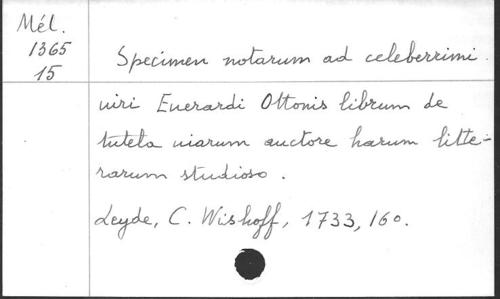 Mél.
1365
15
Specimen notarum ad celeberrimi
viri Everardi Ottonis librum de
tutela viarum auctore harum litte-
rarum studioso.
Leyde, C. Wishoff, 1733, 16o.